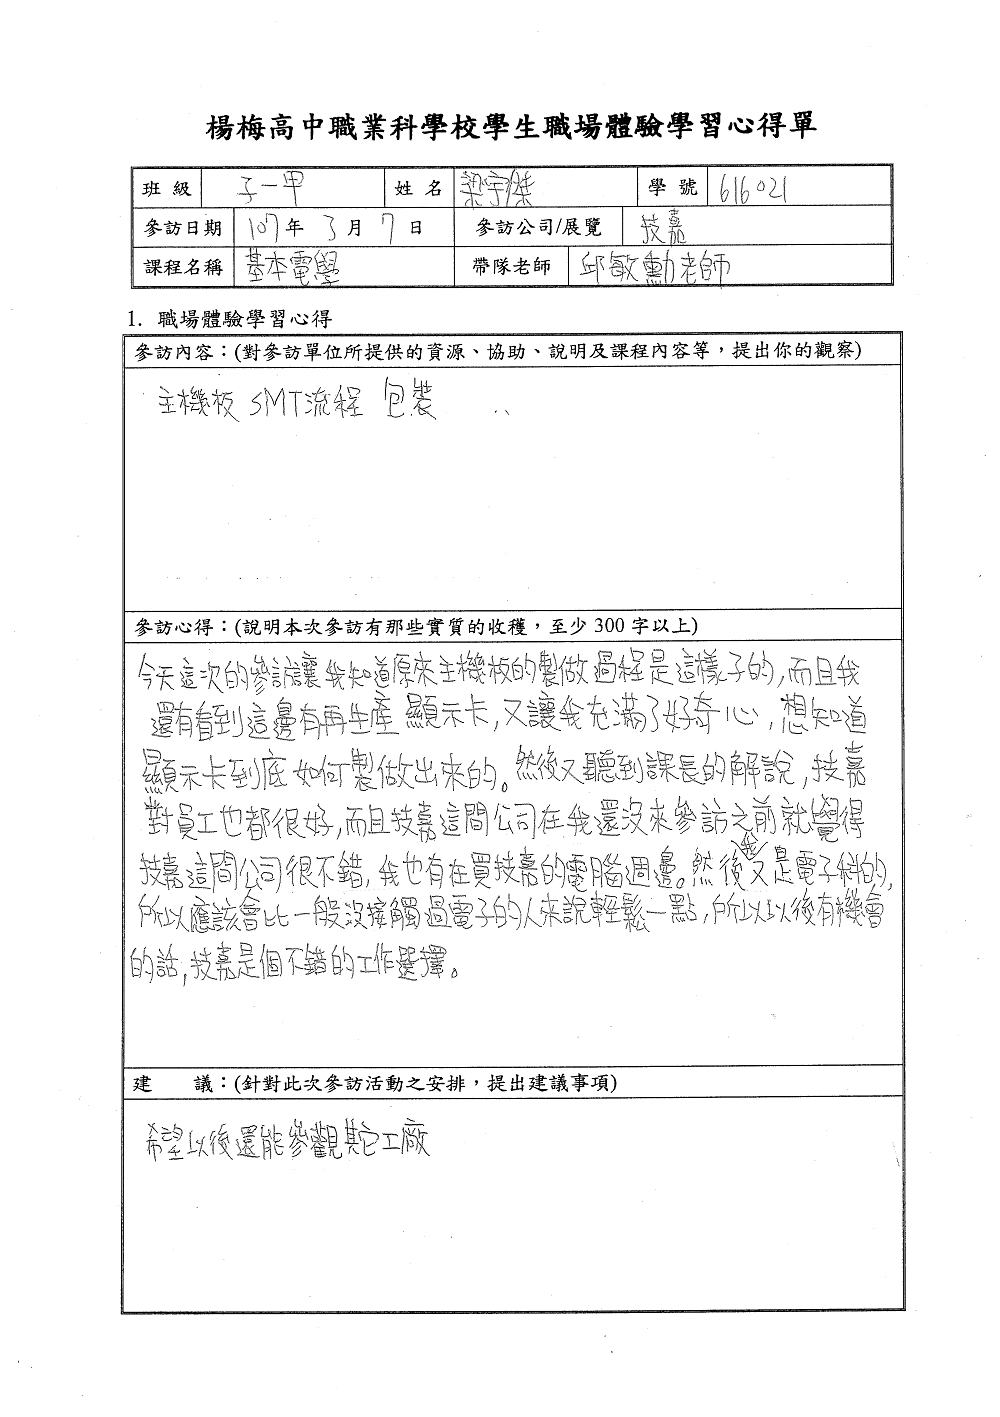 楊梅高中職業科學校學生職場體驗學習心得單
班級 子一甲 姓名 梁宇傑 學號 616021
參訪日期 107年 3月 7日 參訪公司/展覽 技嘉
課程名稱 基本電學 帶隊老師 邱敏勳老師
1. 職場體驗學習心得
參訪內容：(對參訪單位所提供的資源、協助、說明及課程內容等，提出你的觀察)
主機板 SMT流程 包裝
參訪心得：(說明本次參訪有那些實質的收穫，至少 300 字以上)
今天這次的參訪讓我知道原來主機板的製做過程是這樣子的,而且我
還有看到這邊有再生產顯示卡,又讓我充滿了好奇心,想知道
顯示卡到底如何製做出來的。然後又聽到課長的解說,技嘉
對員工也都很好,而且技嘉這間公司在我還沒來參訪之前就覺得
技嘉這間公司很不錯,我也有在買技嘉的電腦週邊。然後我又是電子科的,
所以應該會比一般沒接觸過電子的人來說輕鬆一點,所以以後有機會
的話,技嘉是個不錯的工作選擇。
建 議：(針對此次參訪活動之安排，提出建議事項)
希望以後還能參觀其它工廠